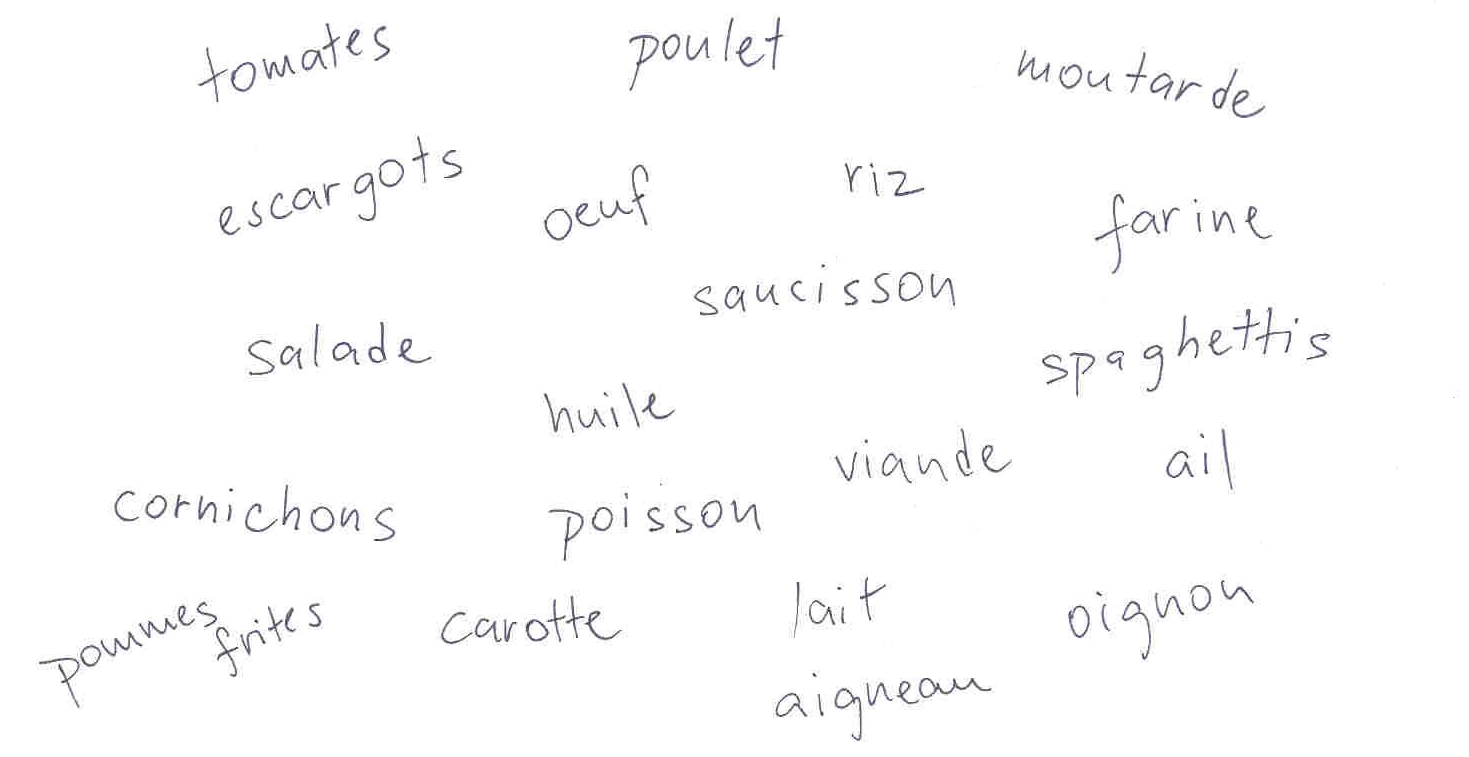 tomates poulet moutarde
escargots oeuf riz farine
saucisson
salade spaghettis
huile
viande ail
cornichons poisson
pommes frites carotte lait oignon
aigneau